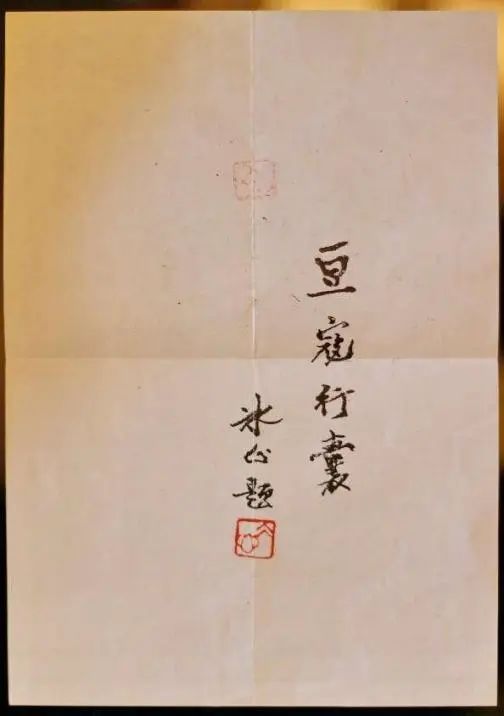 豆寇行囊
冰心题